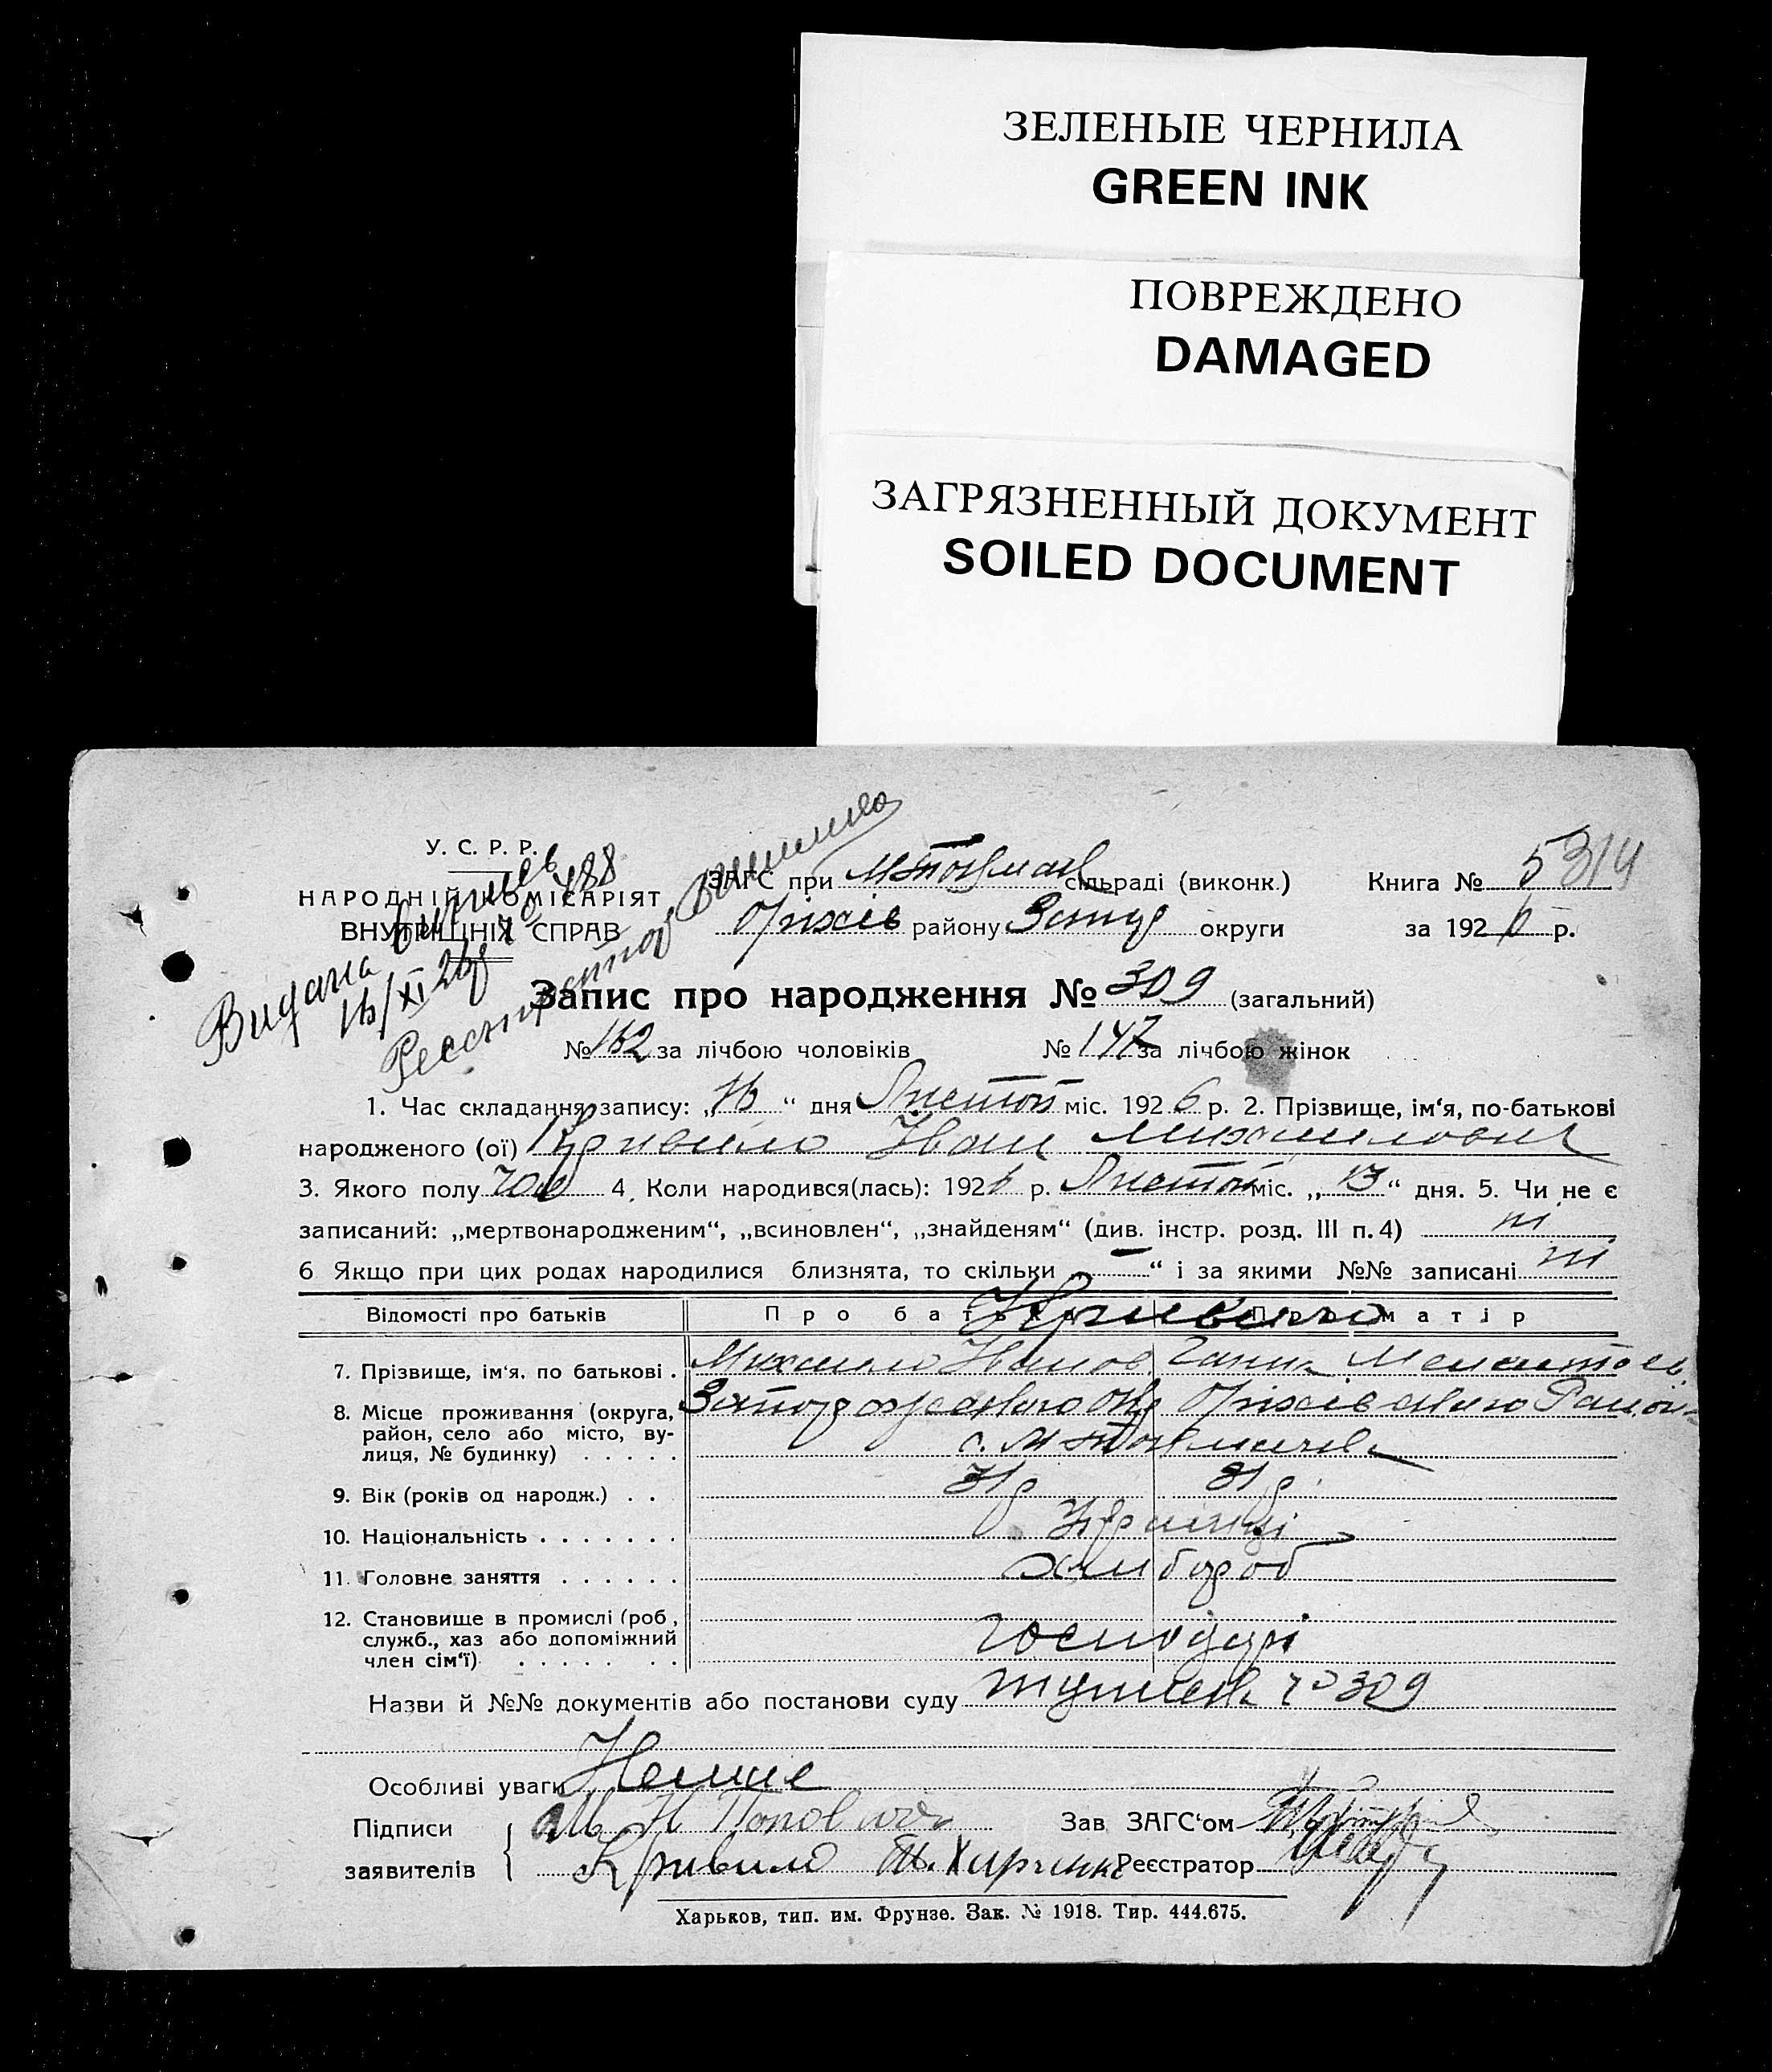 ЗЕЛЕНЫЕ ЧЕРНИЛА
GREEN INK
ПОВРЕЖДЕНО
DAMAGED
ЗАГРЯЗНЕННЫЙ ДОКУМЕНТ
SOILED DOCUMENT
У. С. Р. Р.
НАРОДНІЙ КОМІСАРІЯТ
ВНУТРІШНІХ СПРАВ
Видана 488
16/XI 26р
ЗАГС при М Токмач сільраді (виконк.) Книга № 5 314
Оріхів району Запор округи за 1926 р.
Запис про народження № 309 (загальний)
№ 162 за лічбою чоловіків № 147 за лічбою жінок
1. Час складання запису: „16“ дня Листоп міс. 1926 р. 2. Прізвище, ім‘я, по-батькові
народженого (ої) Кривошло Іван Михайлович
3. Якого полу чол 4. Коли народився(лась): 1926 р. Листоп міс. „13“ дня. 5. Чи не є
записаний: „мертвонародженим“, „всиновлен“, „знайденям“ (див. інстр. розд. III п. 4) ні
6 Якщо при цих родах народилися близнята, то скільки „—“ і за якими №№ записані ні
Відомості про батьків Про батька Про матір
7. Прізвище, ім‘я, по батькові . Михайло Іванов Ганна
8. Місце проживання (округа, район, село або місто, вулиця, № будинку) . . . . . Запорожського Окр Оріхівського Район
с. М Токмачка
9. Вік (років од народж.) . . 31 р 31 р.
10. Національність . . . . . . . Українці
11. Головне заняття . . . . . . хлибороб
12. Становище в промислі (роб., служб., хаз або допоміжний член сім‘ї) . . . . . . . господарі
Назви й №№ документів або постанови суду № 309
Особливі уваги Немає
Підписи Зав ЗАГС‘ом
заявителів Реєстратор
Харьков, тип. им. Фрунзе. Зак. № 1918. Тир. 444.675.